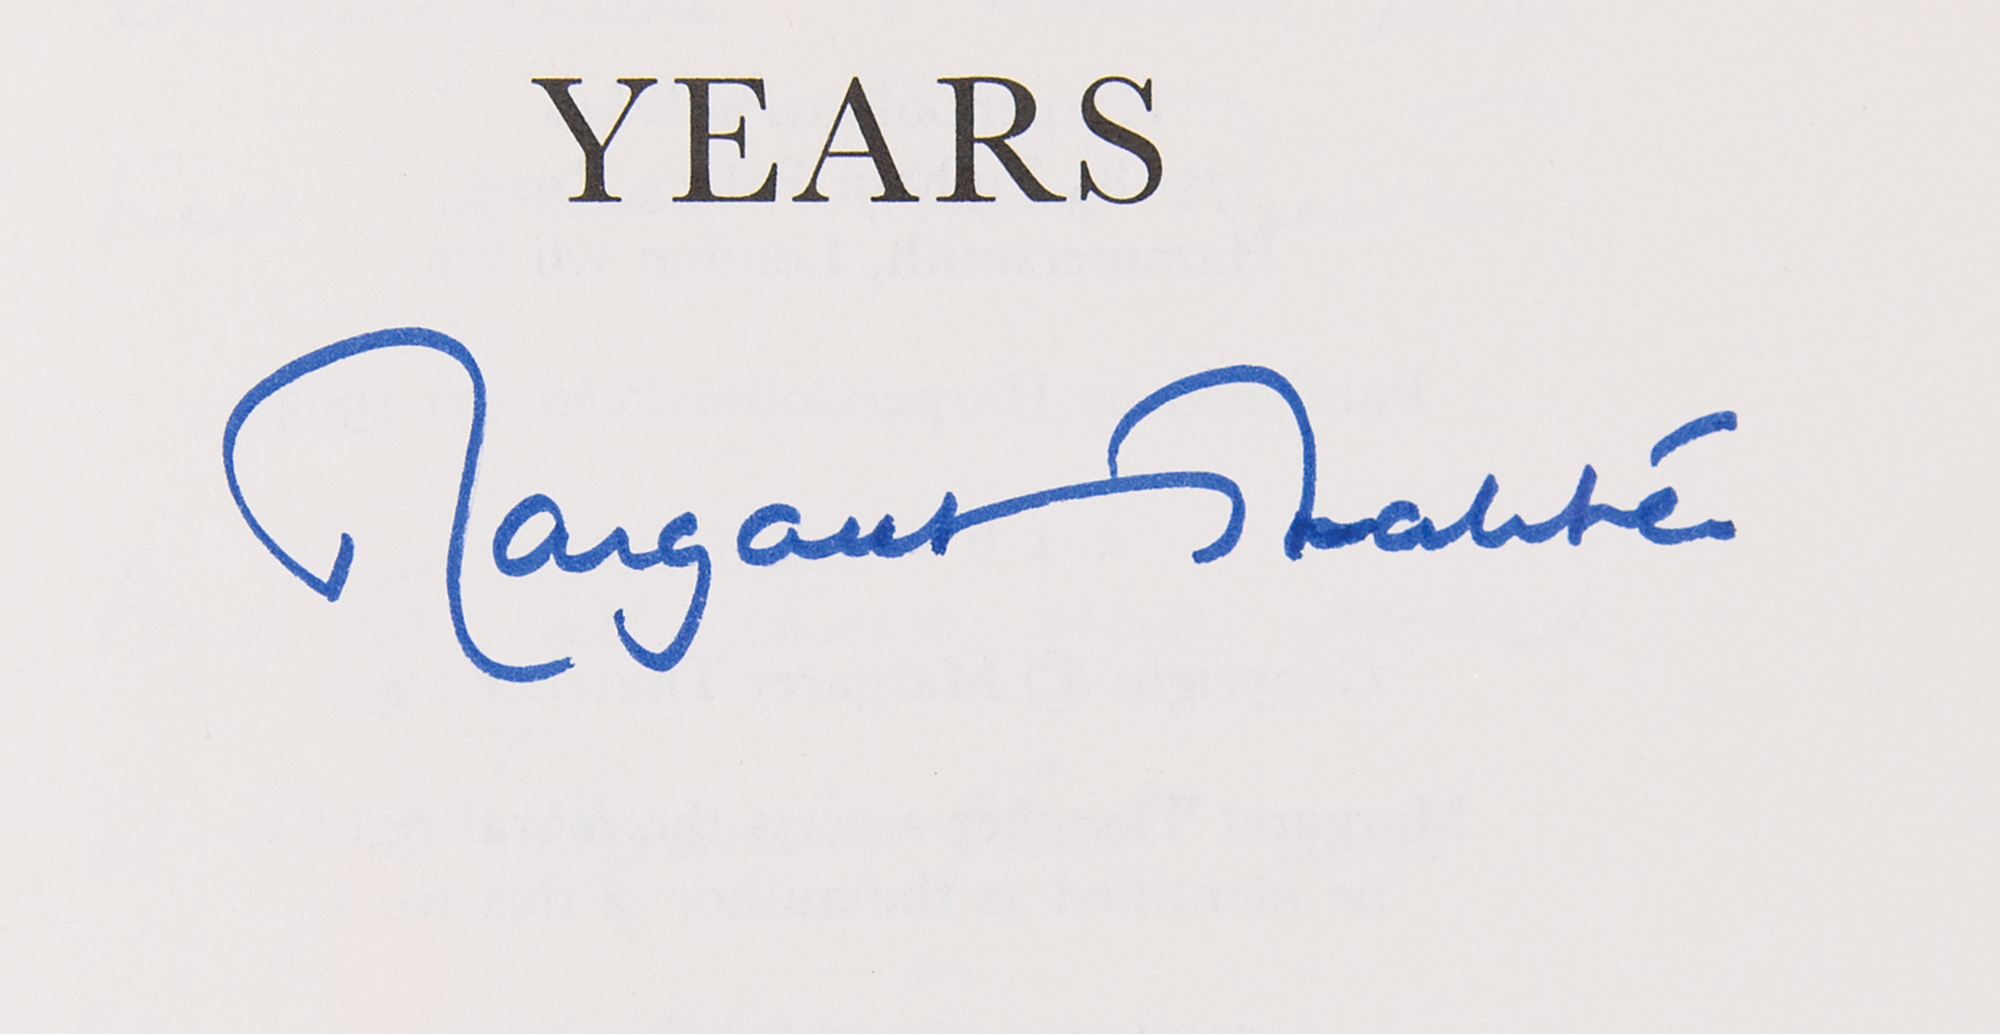 YEARS
Margaret Thatcher